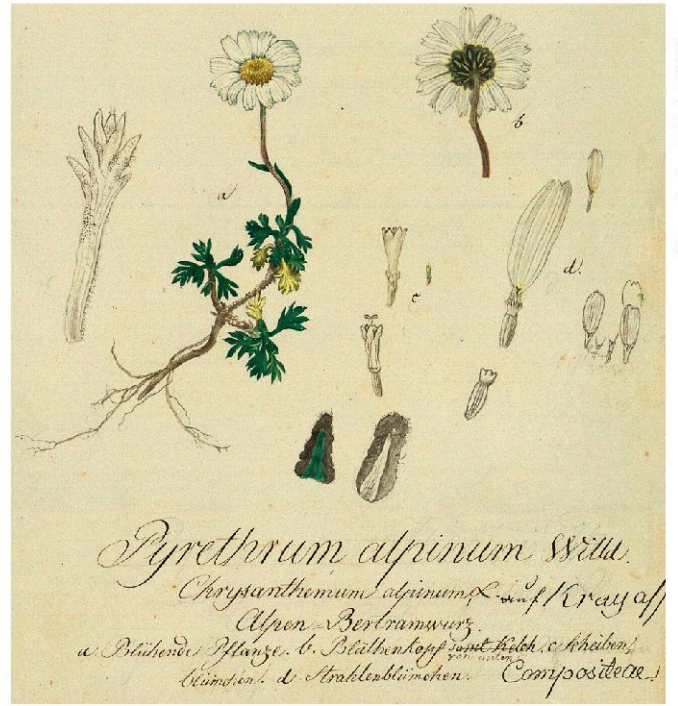 a
b
c
d.
Pyrethrum alpinum Willd.
Chrysanthemum alpinum L. auf Kray aff
Alpen-Bertramwurz.
a Blühende Pflanze. b. Blüthenkopf samt Kelch. c. Scheiben/
von unten
blümchen. d. Strahlenblümchen. Compositeae.